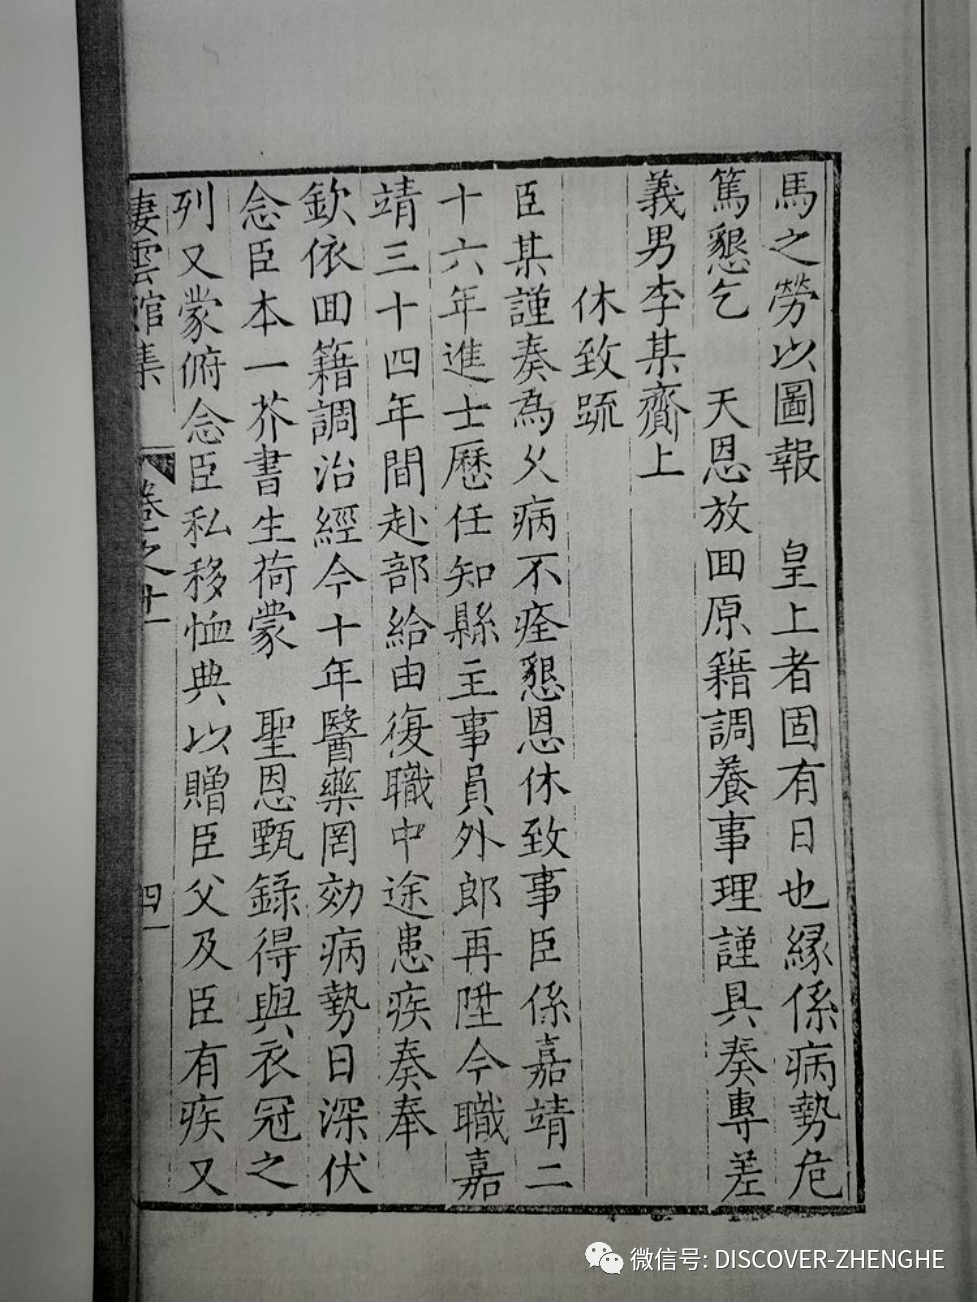 馬之勞以圖報　皇上者固有日也緣係病勢危
篤懇乞　天恩放囬原籍調養事理謹具奏專差
義男李某齎上
休致䟽
臣某謹奏為父病不痊懇恩休致事臣係嘉靖二
十六年進士歷任知縣主事員外郎再陞今職嘉
靖三十四年間赴部給由復職中途患疾奏奉
欽依囬籍調治經今十年醫藥罔効病勢日深伏
念臣本一芥書生荷蒙　聖恩甄錄得與衣冠之
列又蒙俯念臣私移恤典以贈臣父及臣有疾又
棲雲館集　卷之十一　四一
微信号: DISCOVER-ZHENGHE